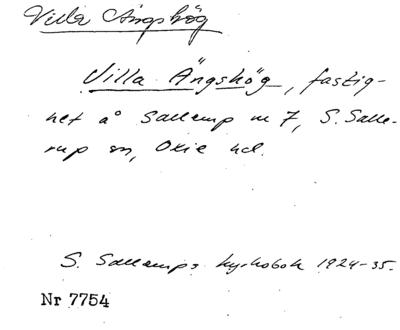 Villa Ängshög
Villa Ängshög, fastig-
het å Sallerup nr 7, S. Salle-
rup sn, Oxie hd.
S. Sallerups kyrkobok 1924-35.
Nr 7754